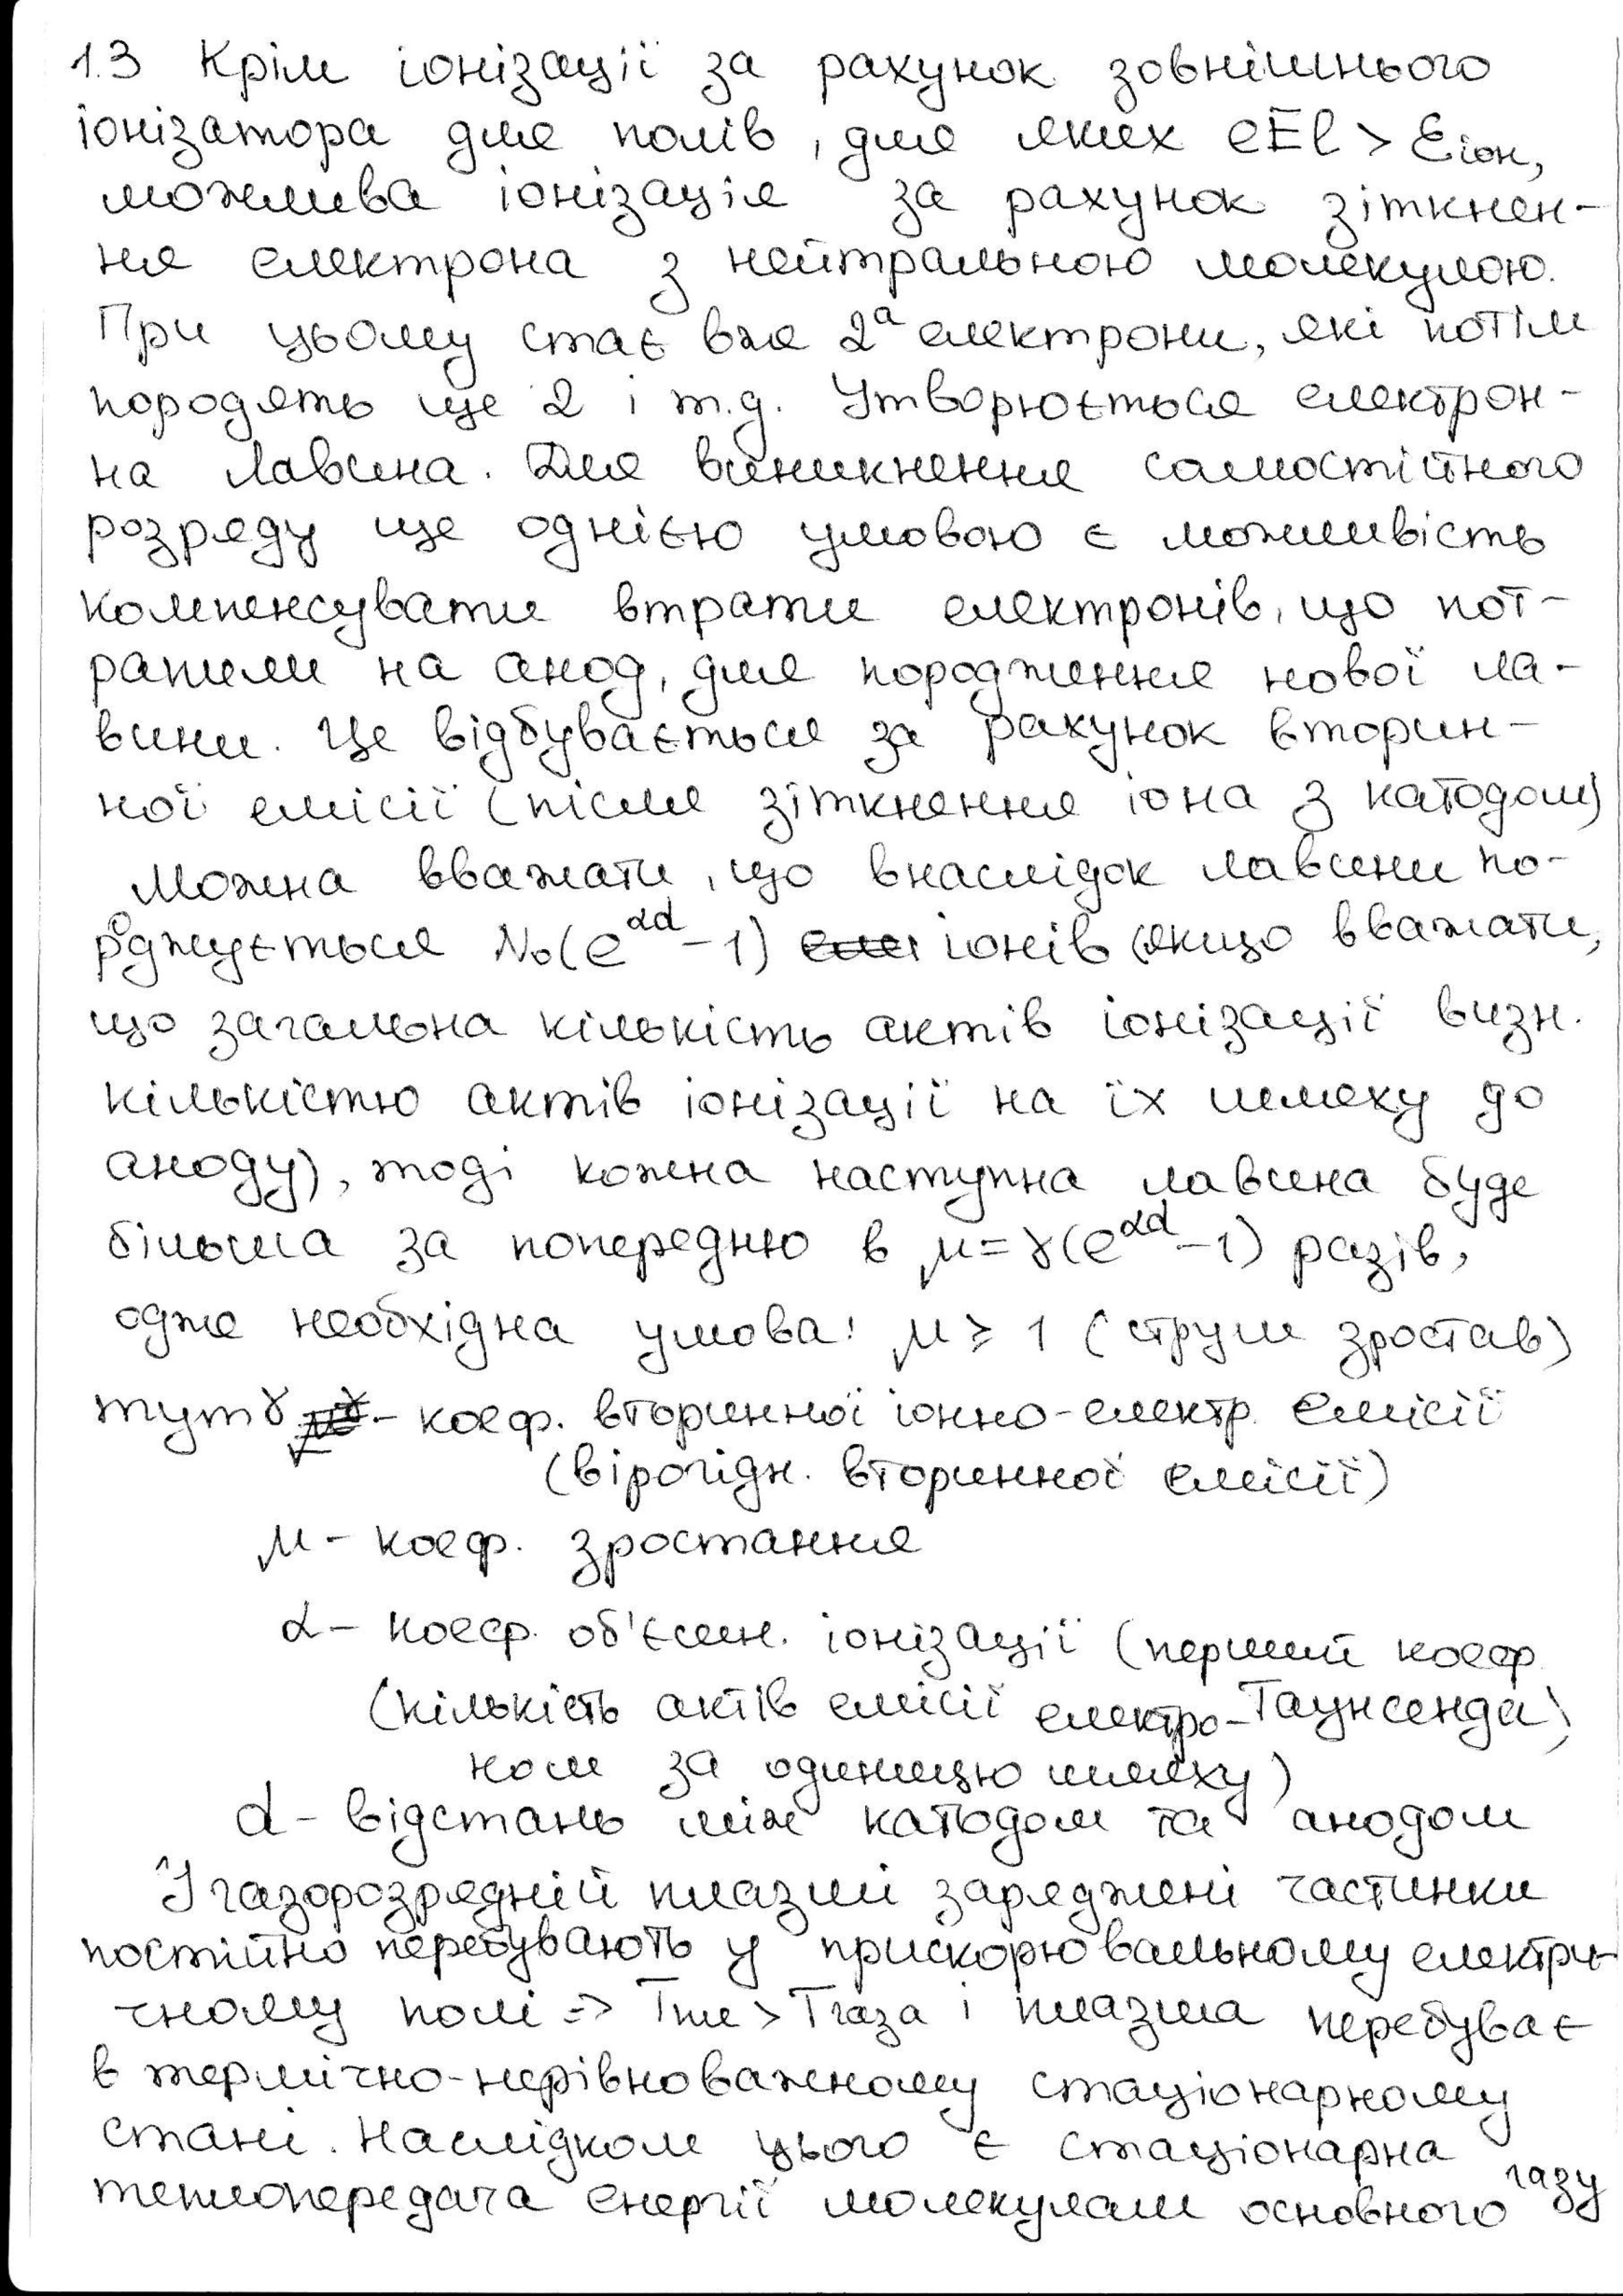 1.3 Крім іонізації за рахунок зовнішнього
іонізатора для полів, для яких eEl > Ɛіон,
можлива іонізація за рахунок зіткнен-
ня електрона з нейтральною молекулою.
При цьому стає вже 2ª електрони, які потім
породять ще 2 і т.д. Утворюється електрон-
на лавина. Для виникнення самостійного
розряду ще однією умовою є можливість
компенсувати втрати електронів, що пот-
рапили на анод, для породження нової ла-
вини. Це відбувається за рахунок вторин-
ної емісії (після зіткнення іона з катодом)
Можна вважати, що внаслідок лавини по-
роджується N₀(e^αd - 1) іонів (якщо вважати,
що загальна кількість актів іонізації визн.
кількістю актів іонізації на їх шляху до
аноду), тоді кожна наступна лавина буде
більша за попередню в μ = γ(e^αd - 1) разів,
одже необхідна умова: μ ≥ 1 (струм зростав)
тут γ - коеф. вторинної іонно-електр. емісії
(вірогідн. вторинної емісії)
μ - коеф. зростання
α - коеф. об'ємн. іонізації (перший коеф.
Таунсенда)
(кількість актів емісії електро-
ном за одиницю шляху)
d - відстань між катодом та анодом
У газорозрядній плазмі заряджені частинки
постійно перебувають у прискорювальному електри-
чному полі => Tпл > Tгаза і плазма перебуває
в термічно-нерівноважному стаціонарному
стані. Наслідком цього є стаціонарна
теплопередача енергії молекулам основного газу